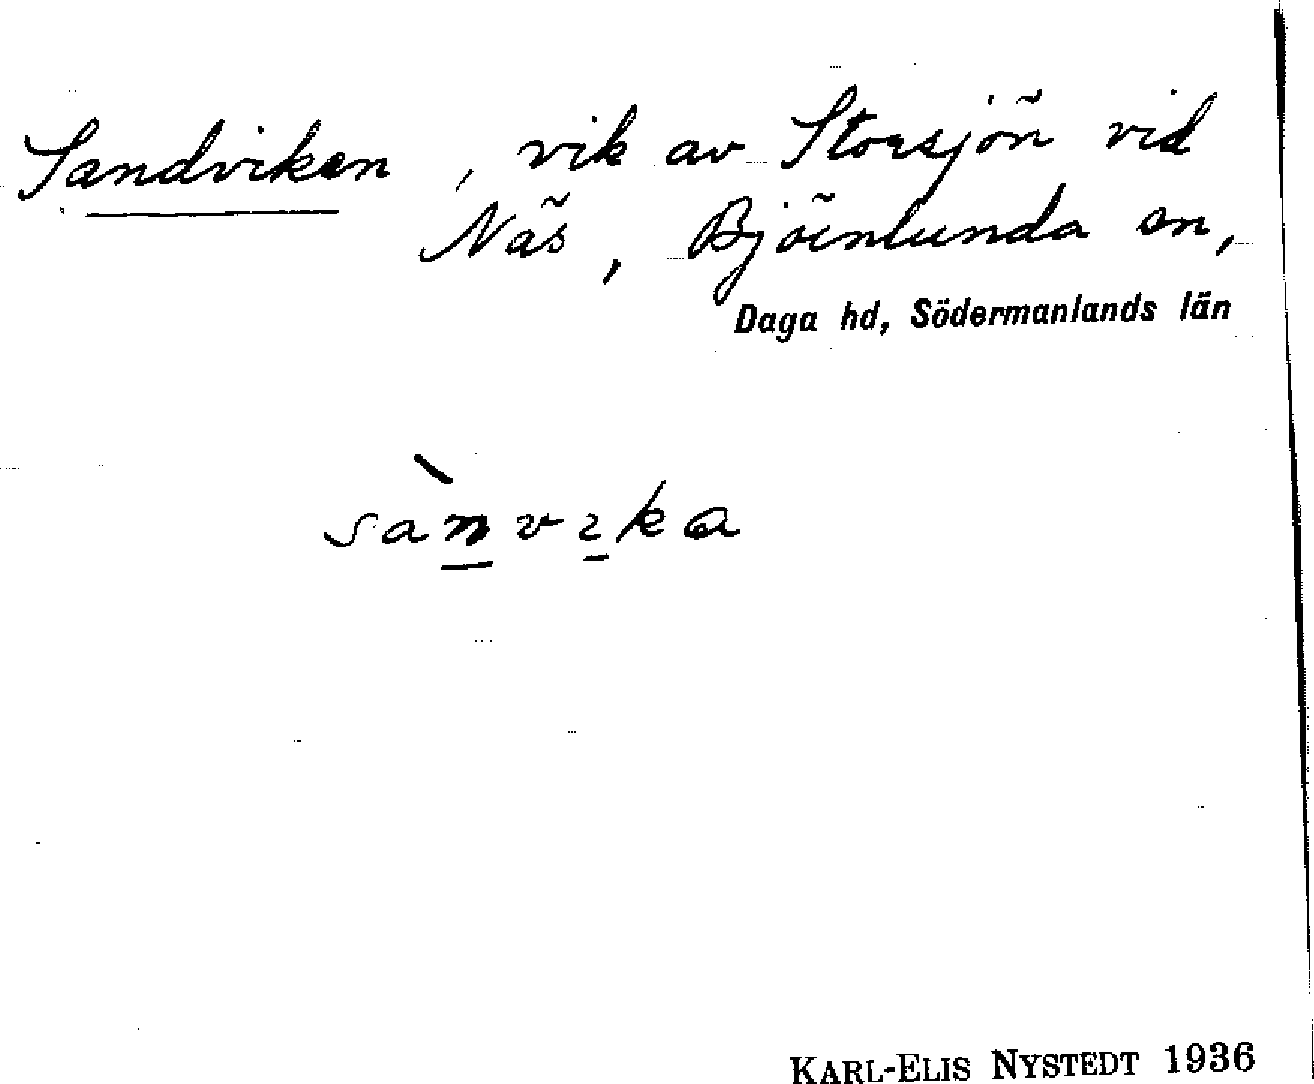 Sandviken, vik av Storsjön vid
Näs, Björnlunda sn,
Daga hd, Södermanlands län
sàn̲vı̲ka
KARL-ELIS NYSTEDT 1936